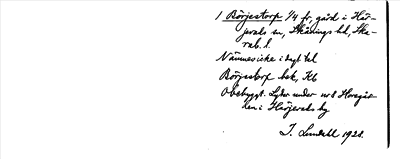 1 Börjestorp 1/4 fr, gård i Här-
jevads sn, Skånings hd, Ska-
rab. l.
Nämnes icke i dagl. tal
Börjestorp bek, Kb
Obebyggt. Lyder under nr 8 Horsgår-
den i Härjevads by
I. Lundahl 1928.